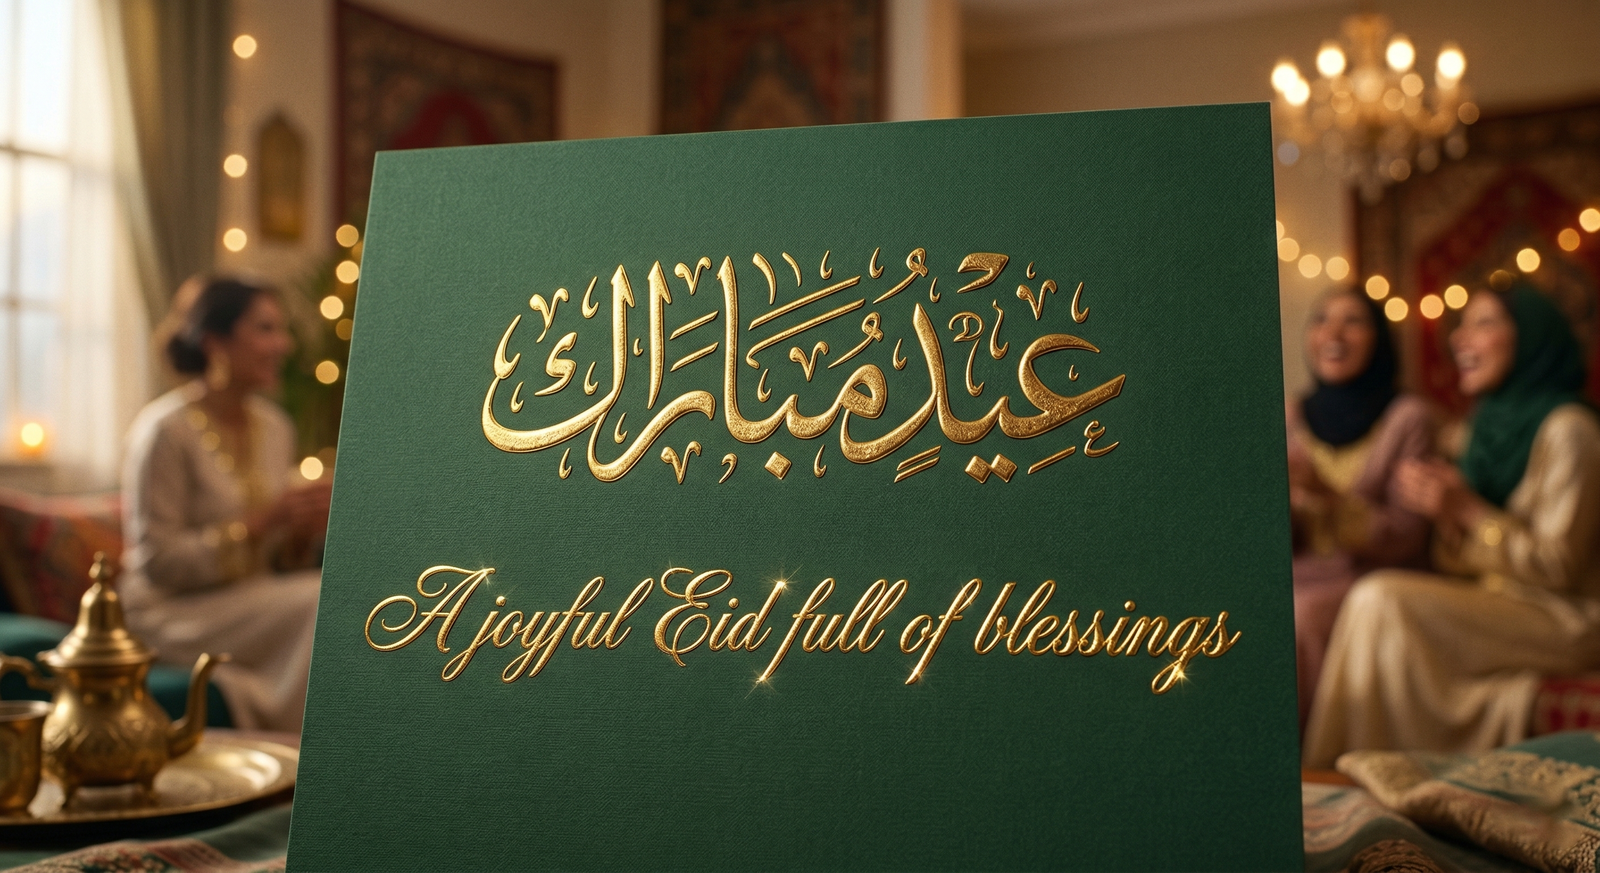 عيد مبارك
A joyful Eid full of blessings